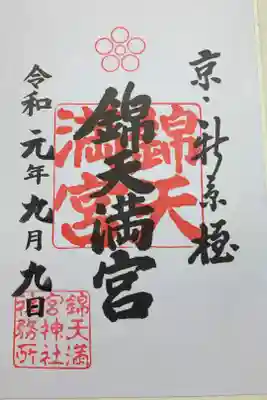 京・新京極
錦天満宮
錦天満宮
令和元年九月九日
錦天満
宮神社
社務所